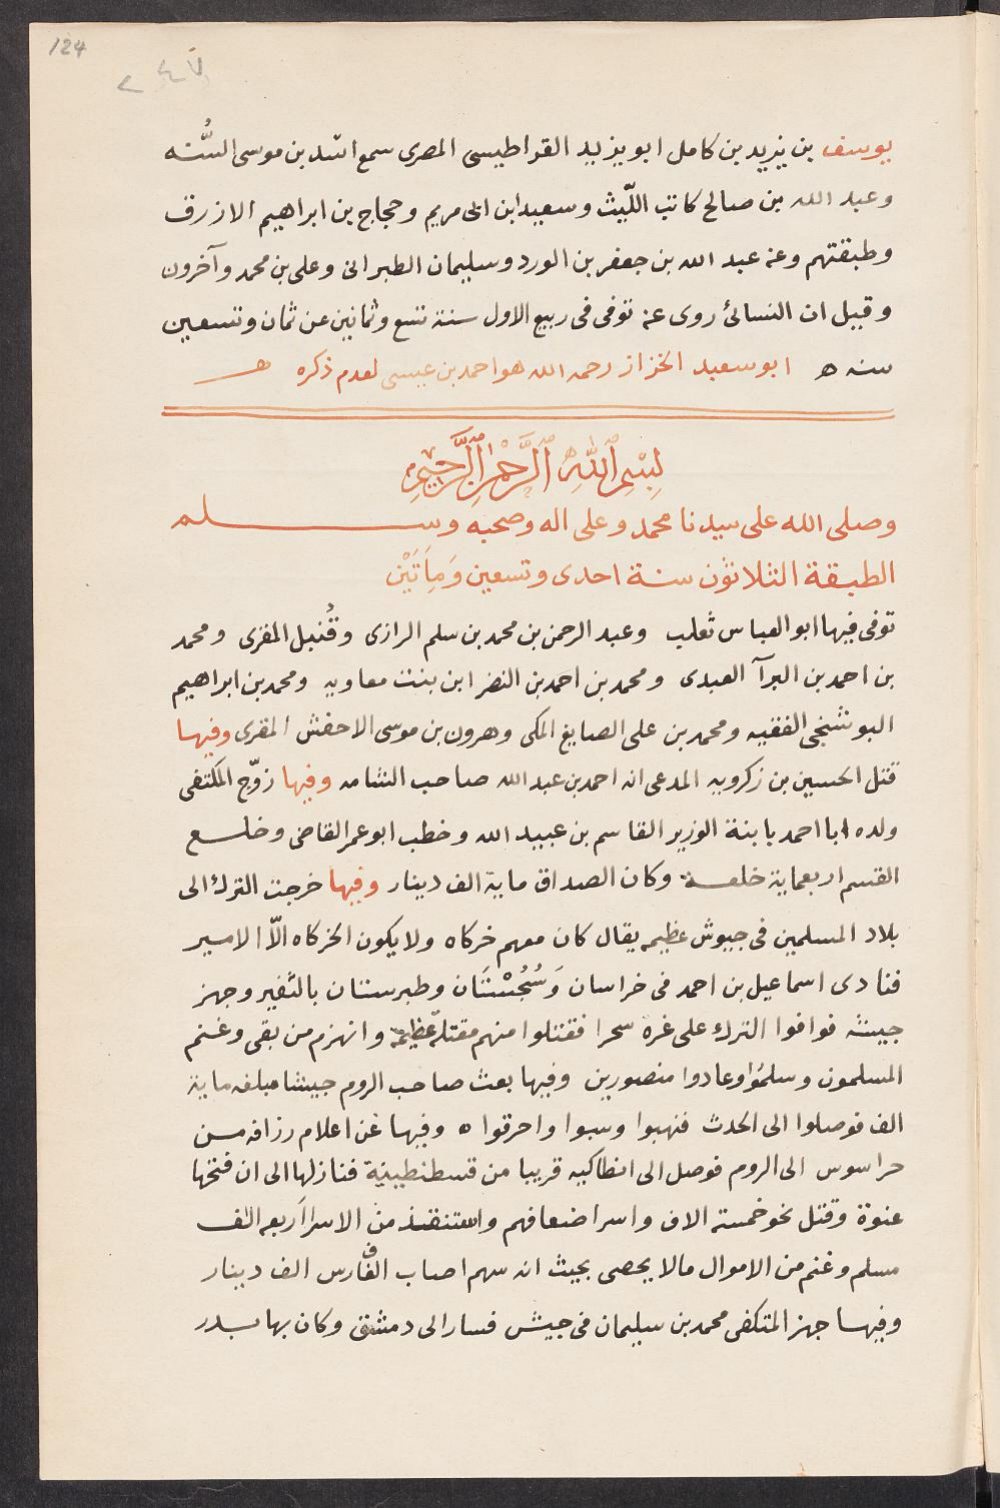 124
يوسف بن يزيد بن كامل ابو يزيد القراطيسى المصرى سمع اسد بن موسى السُّنه
وعبد الله بن صالح كاتب اللّيث وسعيد ابن ابى مريم وحجاج بن ابراهيم الازرق
وطبقتهم وعنه عبد الله بن جعفر بن الورد وسليمان الطبرانى وعلى بن محمد وآخرون
وقيل ان النسائى روى عنه توفى فى ربيع الاول سنة تسع وثمانين عن ثمان وتسعين
سنه ه ابو سعيد الخزاز رحمه الله هو احمد بن عيسى لعدم ذكره
بِسْمِ ٱللّٰهِ ٱلرَّحْمٰنِ ٱلرَّحِيْمِ
وصلى الله على سيدنا محمد وعلى اله وصحبه وسلم
الطبقة الثلاثون سنة احدى وتسعين وَمِاَتَيْن
توفى فيها ابو العباس ثعلب وعبد الرحمن بن محمد بن سلم الرازى وقُنبل المقرى ومحمد
بن احمد بن البرآ العبدى ومحمد بن احمد بن النضر ابن بنت معاويه ومحمد بن ابراهيم
البوشنجى الفقيه ومحمد بن على الصايغ المكى وهرون بن موسى الاخفش المقرى وفيها
قتل الحسين بن زكرويه المدعى انه احمد بن عبد الله صاحب الشامه وفيها زوّج المكتفى
ولده ابا احمد بابنة الوزير القاسم بن عبيد الله وخطب ابو عمر القاضى وخلع
القسم اربعماية خلعة وكان الصداق ماية الف دينار وفيها خرجت الترك الى
بلاد المسلمين فى جيوش عظيمه يقال كان معهم خركاه ولا يكون الخركاه الّا الامير
فنادى اسماعيل بن احمد فى خراسان وَسُجُسْتَان وطبرستان بالنّفير وجهز
جيشه فوافوا الترك على غرة سحرا فقتلوا منهم مقتلة عظيمة وانهزم من بقى وغنم
المسلمون وسلمُوا وعادوا منصورين وفيها بعث صاحب الروم جيشا مبلغه ماية
الف فوصلوا الى الحدث فنهبوا وسبوا واحرقوا ه وفيها غن اعلام رزافه من
حراسوس الى الروم فوصل الى انطاكيه قريبا من قسطنطينية فنازلها الى ان فتحها
عنوة وقتل نحو خمسة الاف واسر اضعافهم واستنقذ من الاسر اَربعه الف
مسلم وغنم من الاموال مالا يحصى بحيث انه سهم اصاب الفارس الف دينار
وفيها جهز المتكفى محمد بن سليمان فى جيش فسار الى دمشق وكان بها بدر